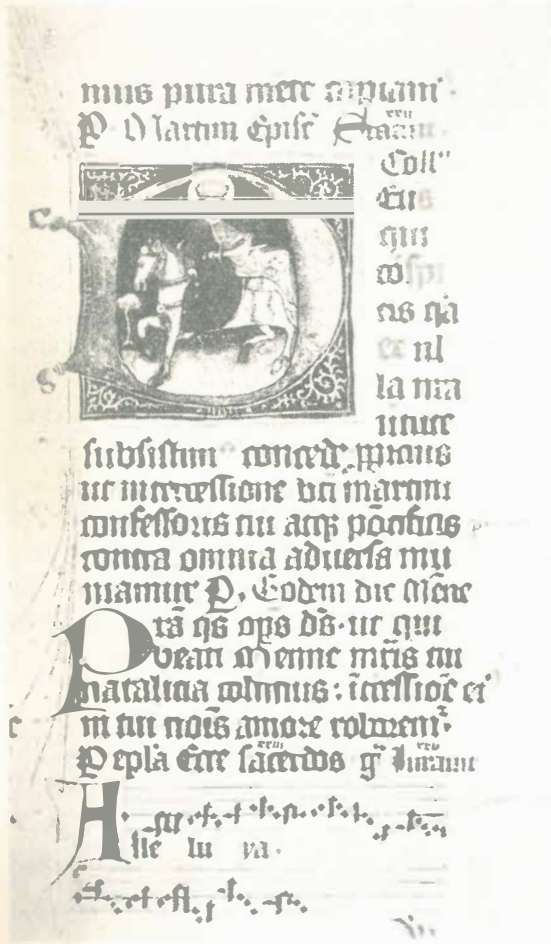 mus pura mete capiam
P. Martini Episc
Coll'
Eus
qui
co
cis qa
ex nl
la nra
utute
subsistim concede ppicius
ut intercessione bti martini
confessoris tui atqz potificis
contra omnia adversa mu
niamur P. Eodem die Mene
Pra qs ops ds. ut qui
beati Menne mris tui
natalicia colimus: icessioe ei'
in tui nois amore roborem
P epla Ecce sacerdos g Iurauit
Alle lu ya.